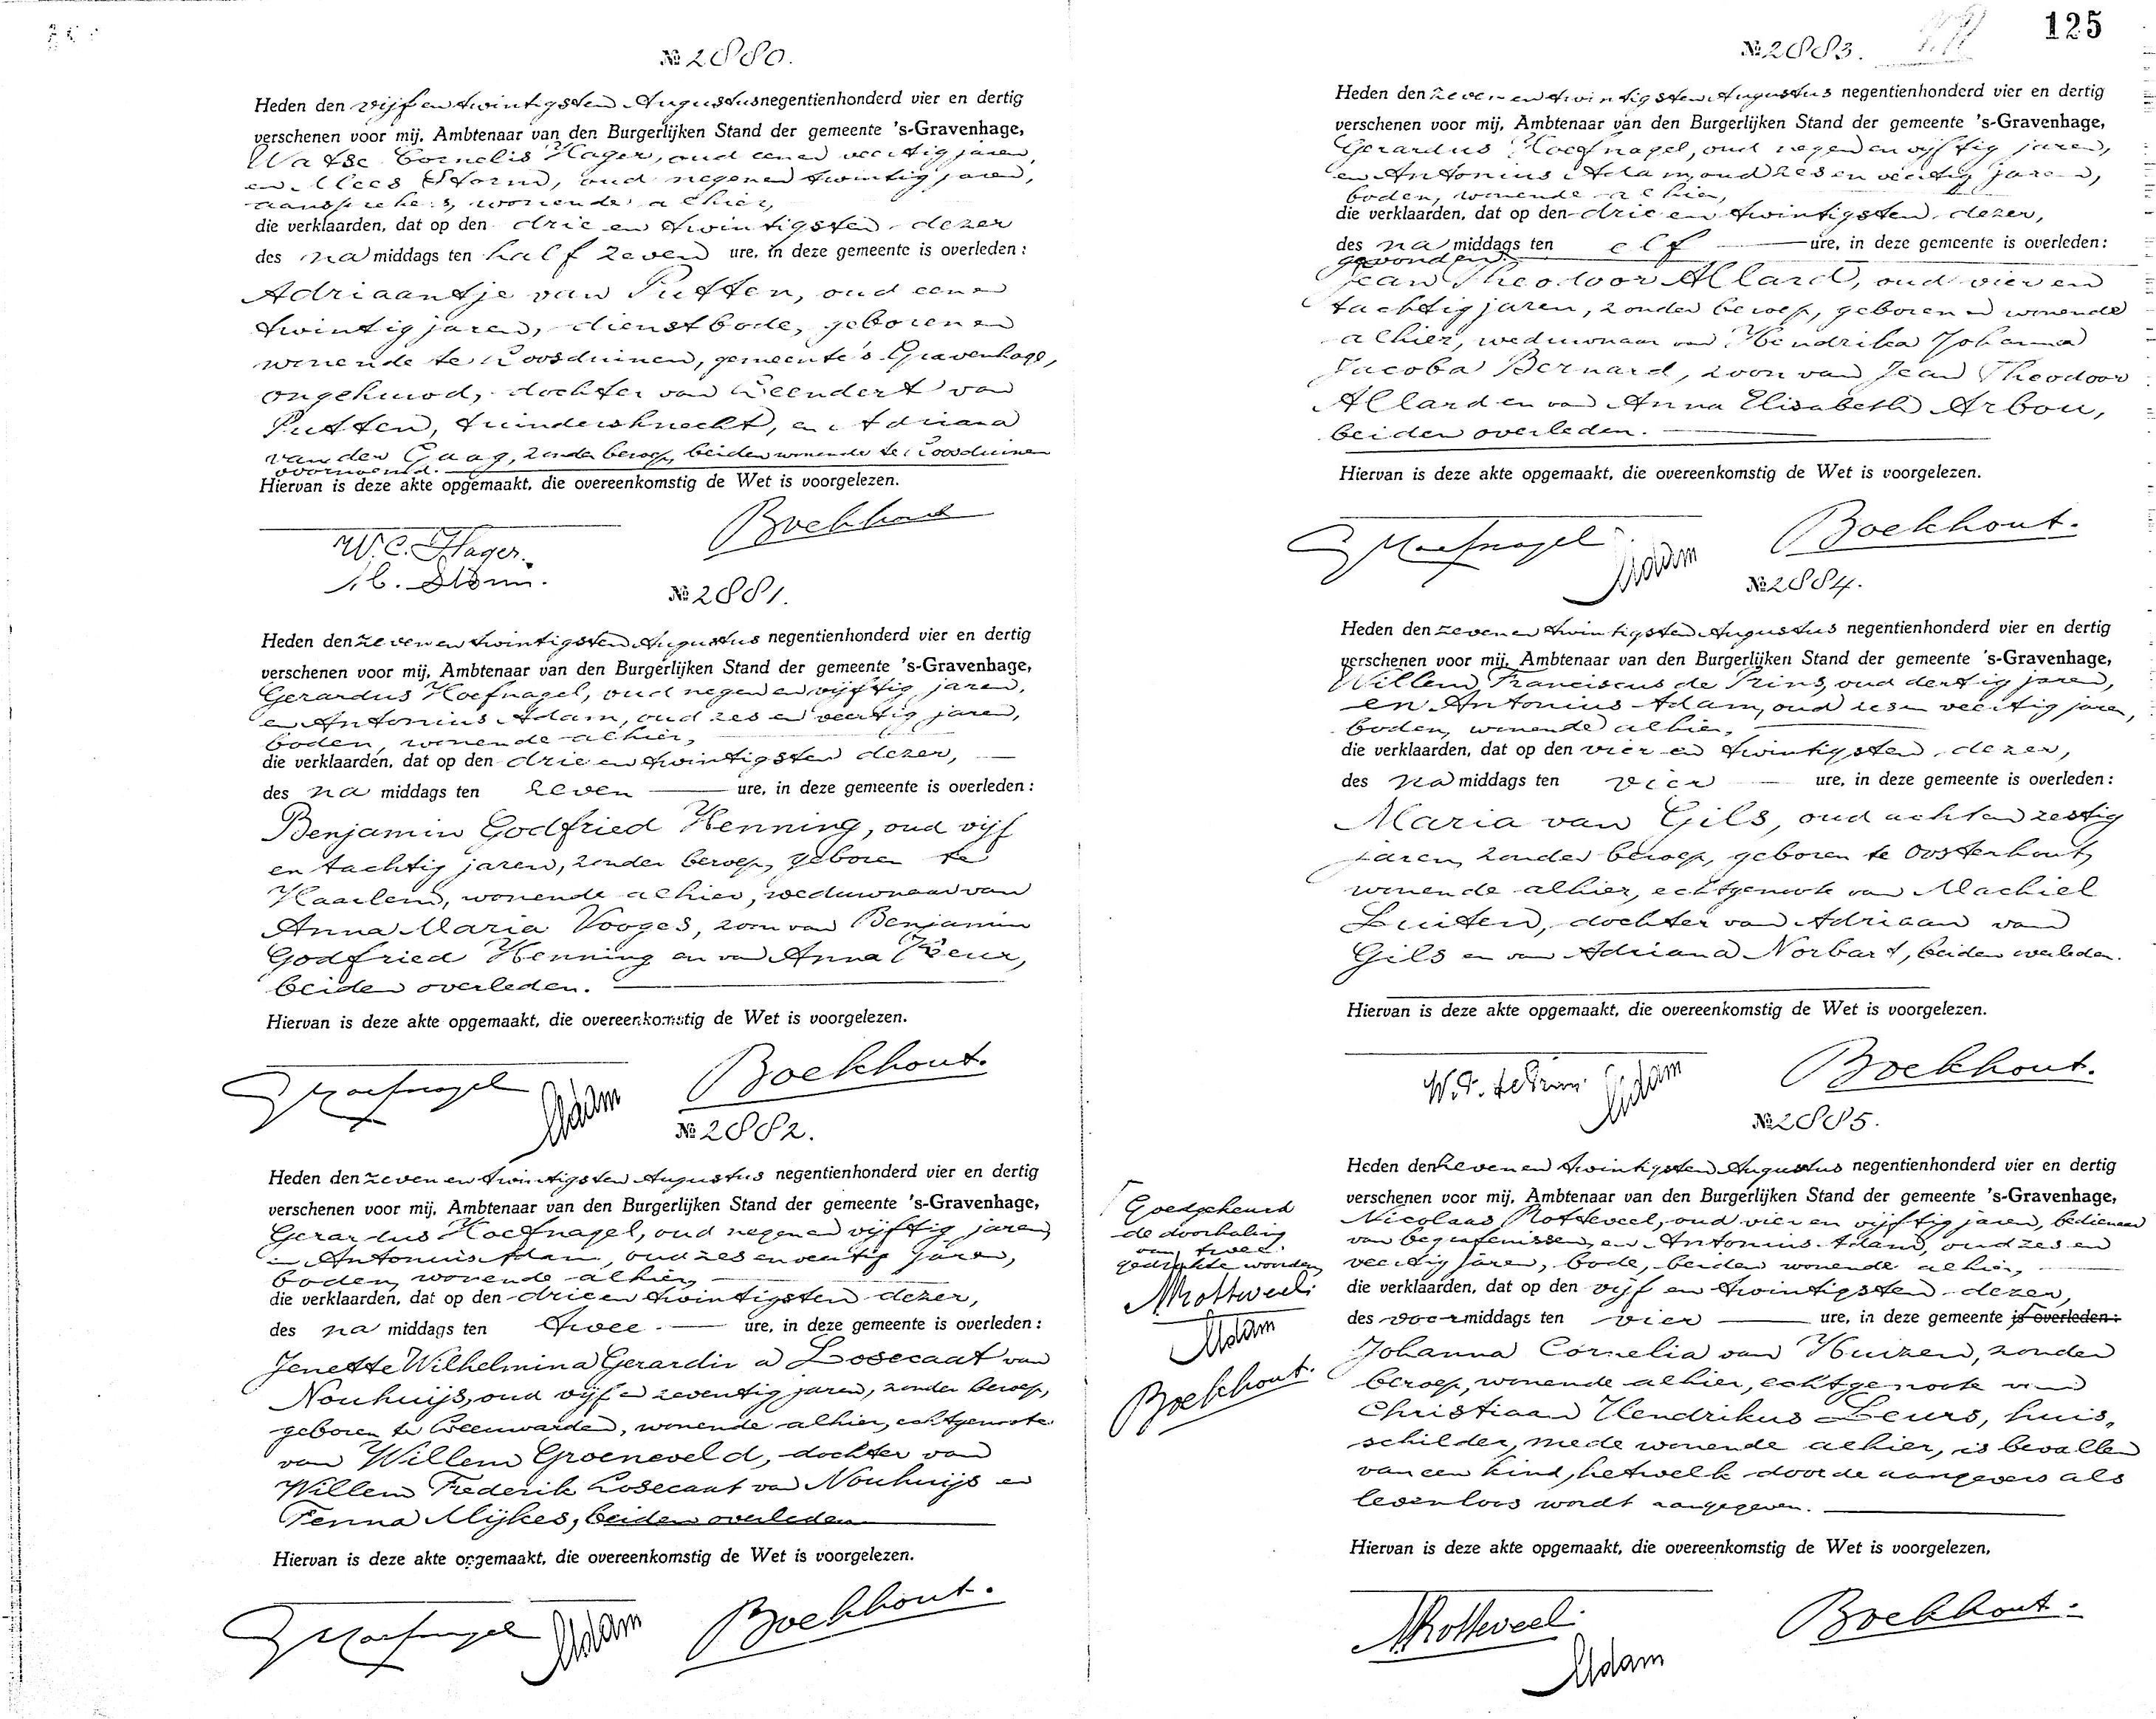 № 2880.
Heden den vijf en twintigsten Augustus negentienhonderd vier en dertig
verschenen voor mij, Ambtenaar van den Burgerlijken Stand der gemeente 's-Gravenhage,
Watse Cornelis Hager, oud een en veertig jaren,
en Cees Storm, oud negen en twintig jaren,
aansprekers, wonende alhier,
die verklaarden, dat op den drie en twintigsten dezer
des na middags ten half zeven ure, in deze gemeente is overleden:
Adriaantje van Putten, oud een en
twintig jaren, dienstbode, geboren en
wonende te Loosduinen, gemeente 's Gravenhage,
ongehuwd, dochter van Leendert van
Putten, tuindersknecht, en Adriana
van der Gaag, zonder beroep, beiden wonende te Loosduinen
voornoemd.
Hiervan is deze akte opgemaakt, die overeenkomstig de Wet is voorgelezen.
W.C. Hager. Boekhout
C. Storm.
№ 2881.
Heden den zeven en twintigsten Augustus negentienhonderd vier en dertig
verschenen voor mij, Ambtenaar van den Burgerlijken Stand der gemeente 's-Gravenhage,
Gerardus Hoefnagel, oud negen en vijftig jaren,
en Antonius Adam, oud zes en veertig jaren,
boden, wonende alhier,
die verklaarden, dat op den drie en twintigsten dezer,
des na middags ten zeven ure, in deze gemeente is overleden:
Benjamin Godfried Henning, oud vijf
en tachtig jaren, zonder beroep, geboren te
Haarlem, wonende alhier, weduwnaar van
Anna Maria Vooges, zoon van Benjamin
Godfried Henning en van Anna Keur,
beiden overleden.
Hiervan is deze akte opgemaakt, die overeenkomstig de Wet is voorgelezen.
G Hoefnagel Adam Boekhout.
№ 2882.
Heden den zeven en twintigsten Augustus negentienhonderd vier en dertig
verschenen voor mij, Ambtenaar van den Burgerlijken Stand der gemeente 's-Gravenhage,
Gerardus Hoefnagel, oud negen en vijftig jaren
en Antonius Adam, oud zes en veertig jaren,
boden, wonende alhier,
die verklaarden, dat op den drie en twintigsten dezer,
des na middags ten twee ure, in deze gemeente is overleden:
Jenette Wilhelmina Gerardina Losecaat van
Nouhuijs, oud vijf en zeventig jaren, zonder beroep,
geboren te Leeuwarden, wonende alhier, echtgenoote
van Willem Groeneveld, dochter van
Willem Frederik Losecaat van Nouhuijs en
Fenna Mijkes, beiden overleden
Hiervan is deze akte opgemaakt, die overeenkomstig de Wet is voorgelezen.
G Hoefnagel Adam Boekhout.
125
№ 2883.
Heden den zeven en twintigsten Augustus negentienhonderd vier en dertig
verschenen voor mij, Ambtenaar van den Burgerlijken Stand der gemeente 's-Gravenhage,
Gerardus Hoefnagel, oud negen en vijftig jaren,
en Antonius Adam, oud zes en veertig jaren,
boden, wonende alhier,
die verklaarden, dat op den drie en twintigsten dezer,
des na middags ten elf ure, in deze gemeente is overleden:
gevonden:
Jean Theodoor Allard, oud vier en
tachtig jaren, zonder beroep, geboren en wonende
alhier, weduwnaar van Hendrika Johanna
Jacoba Bernard, zoon van Jean Theodoor
Allard en van Anna Elisabeth Arbou,
beiden overleden.
Hiervan is deze akte opgemaakt, die overeenkomstig de Wet is voorgelezen.
G Hoefnagel Adam Boekhout.
№ 2884.
Heden den zeven en twintigsten Augustus negentienhonderd vier en dertig
verschenen voor mij, Ambtenaar van den Burgerlijken Stand der gemeente 's-Gravenhage,
Willem Franciscus de Prins, oud dertig jaren,
en Antonius Adam, oud zes en veertig jaren,
boden, wonende alhier,
die verklaarden, dat op den vier en twintigsten dezer,
des na middags ten vier ure, in deze gemeente is overleden:
Maria van Gils, oud acht en zestig
jaren, zonder beroep, geboren te Oosterhout,
wonende alhier, echtgenoote van Machiel
Luiten, dochter van Adriaan van
Gils en van Adriana Norbart, beiden overleden.
Hiervan is deze akte opgemaakt, die overeenkomstig de Wet is voorgelezen.
W.F. de Prins Adam Boekhout.
№ 2885.
Goedgekeurd
de doorhaling
van twee
gedrukte woorden
NRotteveel.
Adam
Boekhout.
Heden den zeven en twintigsten Augustus negentienhonderd vier en dertig
verschenen voor mij, Ambtenaar van den Burgerlijken Stand der gemeente 's-Gravenhage,
Nicolaas Rotteveel, oud vier en vijftig jaren, bedienaar
van begrafenissen, en Antonius Adam, oud zes en
veertig jaren, bode, beiden wonende alhier,
die verklaarden, dat op den vijf en twintigsten dezer,
des voor middags ten vier ure, in deze gemeente is overleden:
Johanna Cornelia van Huizen, zonder
beroep, wonende alhier, echtgenoote van
Christiaan Hendrikus Leurs, huis-
schilder, mede wonende alhier, is bevallen
van een kind, hetwelk door de aangevers als
levenloos wordt aangegeven.
Hiervan is deze akte opgemaakt, die overeenkomstig de Wet is voorgelezen,
NRotteveel. Boekhout.
Adam